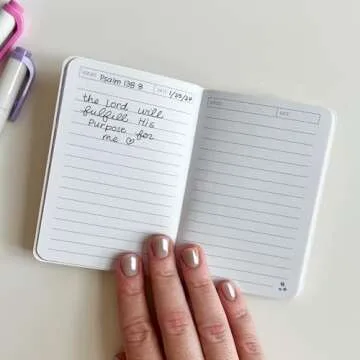 Psalm 138:8
DATE 1/25/24
the Lord will
fulfill His
Purpose for
me ♡
DATE